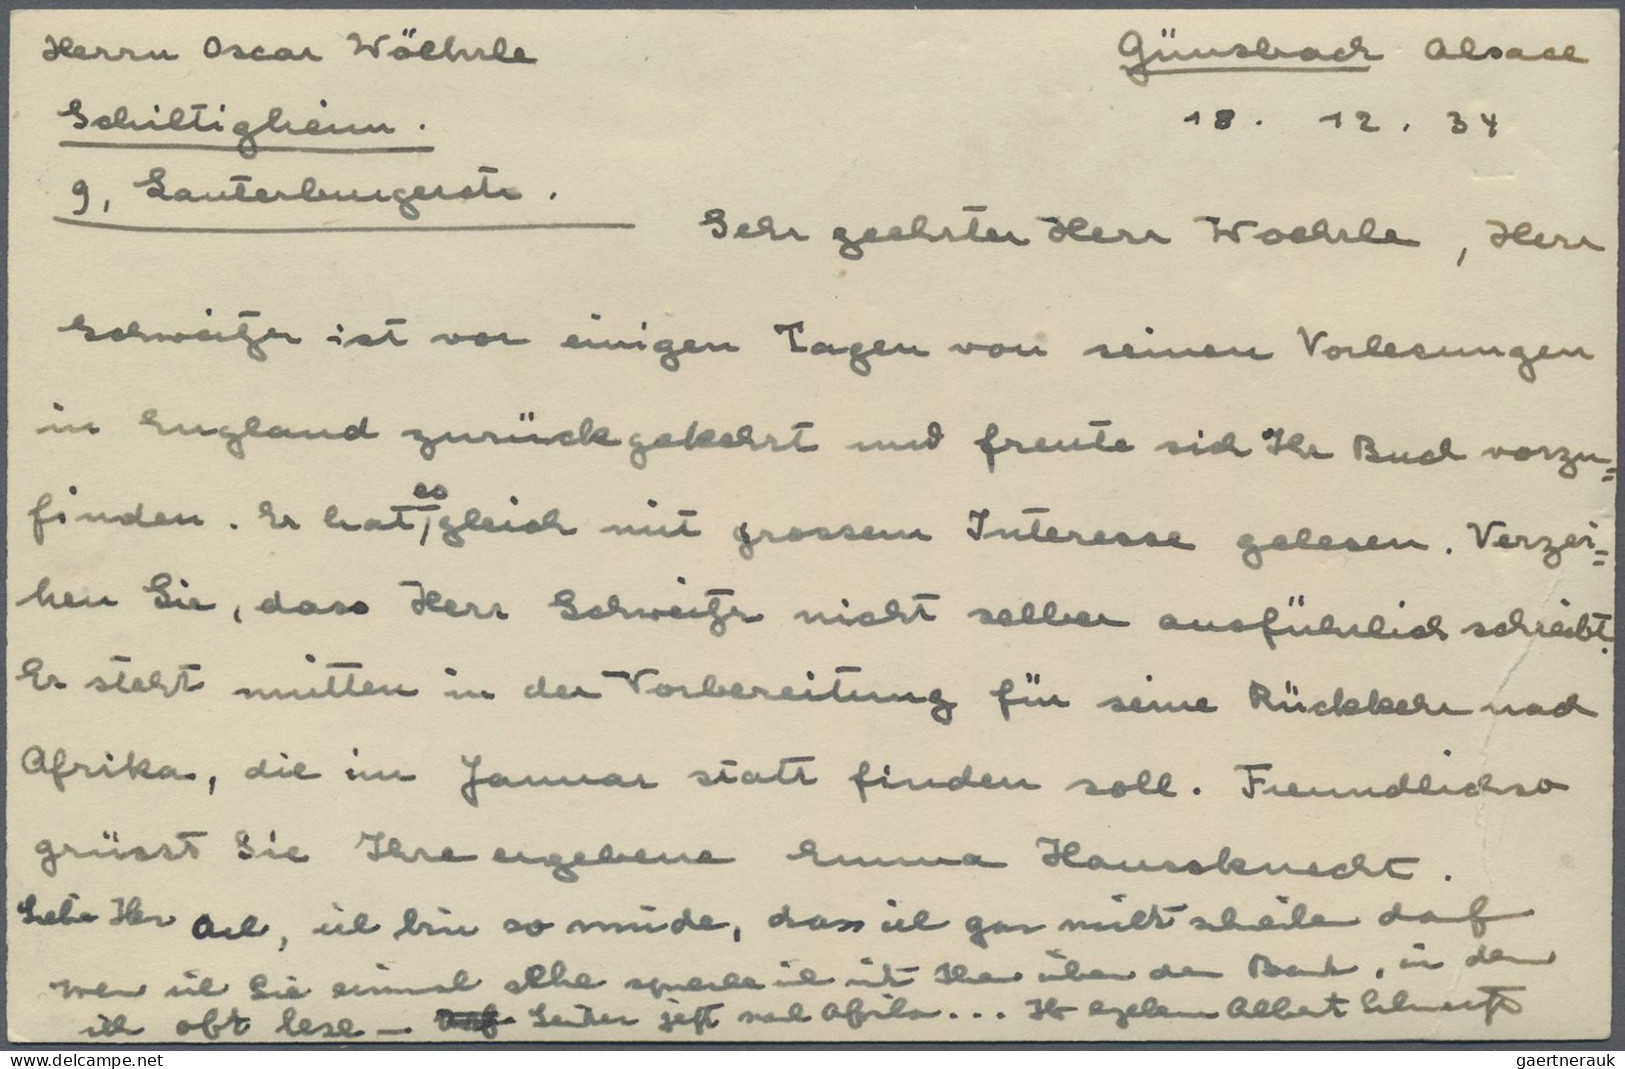 Herrn Oscar Wöehrle
Günsbach Alsace
Schiltigheim.
18. 12. 34
9, Lauterburgerstr.
Sehr geehrter Herr Woehrle, Herr
Schweitzer ist vor einigen Tagen von seinen Vorlesungen
in England zurückgekehrt und freute sich Ihr Buch vorzu=
finden. Er hat es gleich mit grossem Interesse gelesen. Verzei=
hen Sie, dass Herr Schweitzer nicht selber ausführlich schreibt.
Er steht mitten in der Vorbereitung für seine Rückkehr nach
Afrika, die im Januar statt finden soll. Freundlichst
grüsst Sie Ihre ergebene Emma Haussknecht.
Lieber Herr, ich bin so müde, dass ich gar nicht schreiben darf
Wenn ich Sie einmal sehe spreche ich mit Ihnen über den Band, in dem
ich oft lese – Leider jetzt nach Afrika... Ihr ergebener Albert Schweitzer
delcampe.net
gaertnerauk